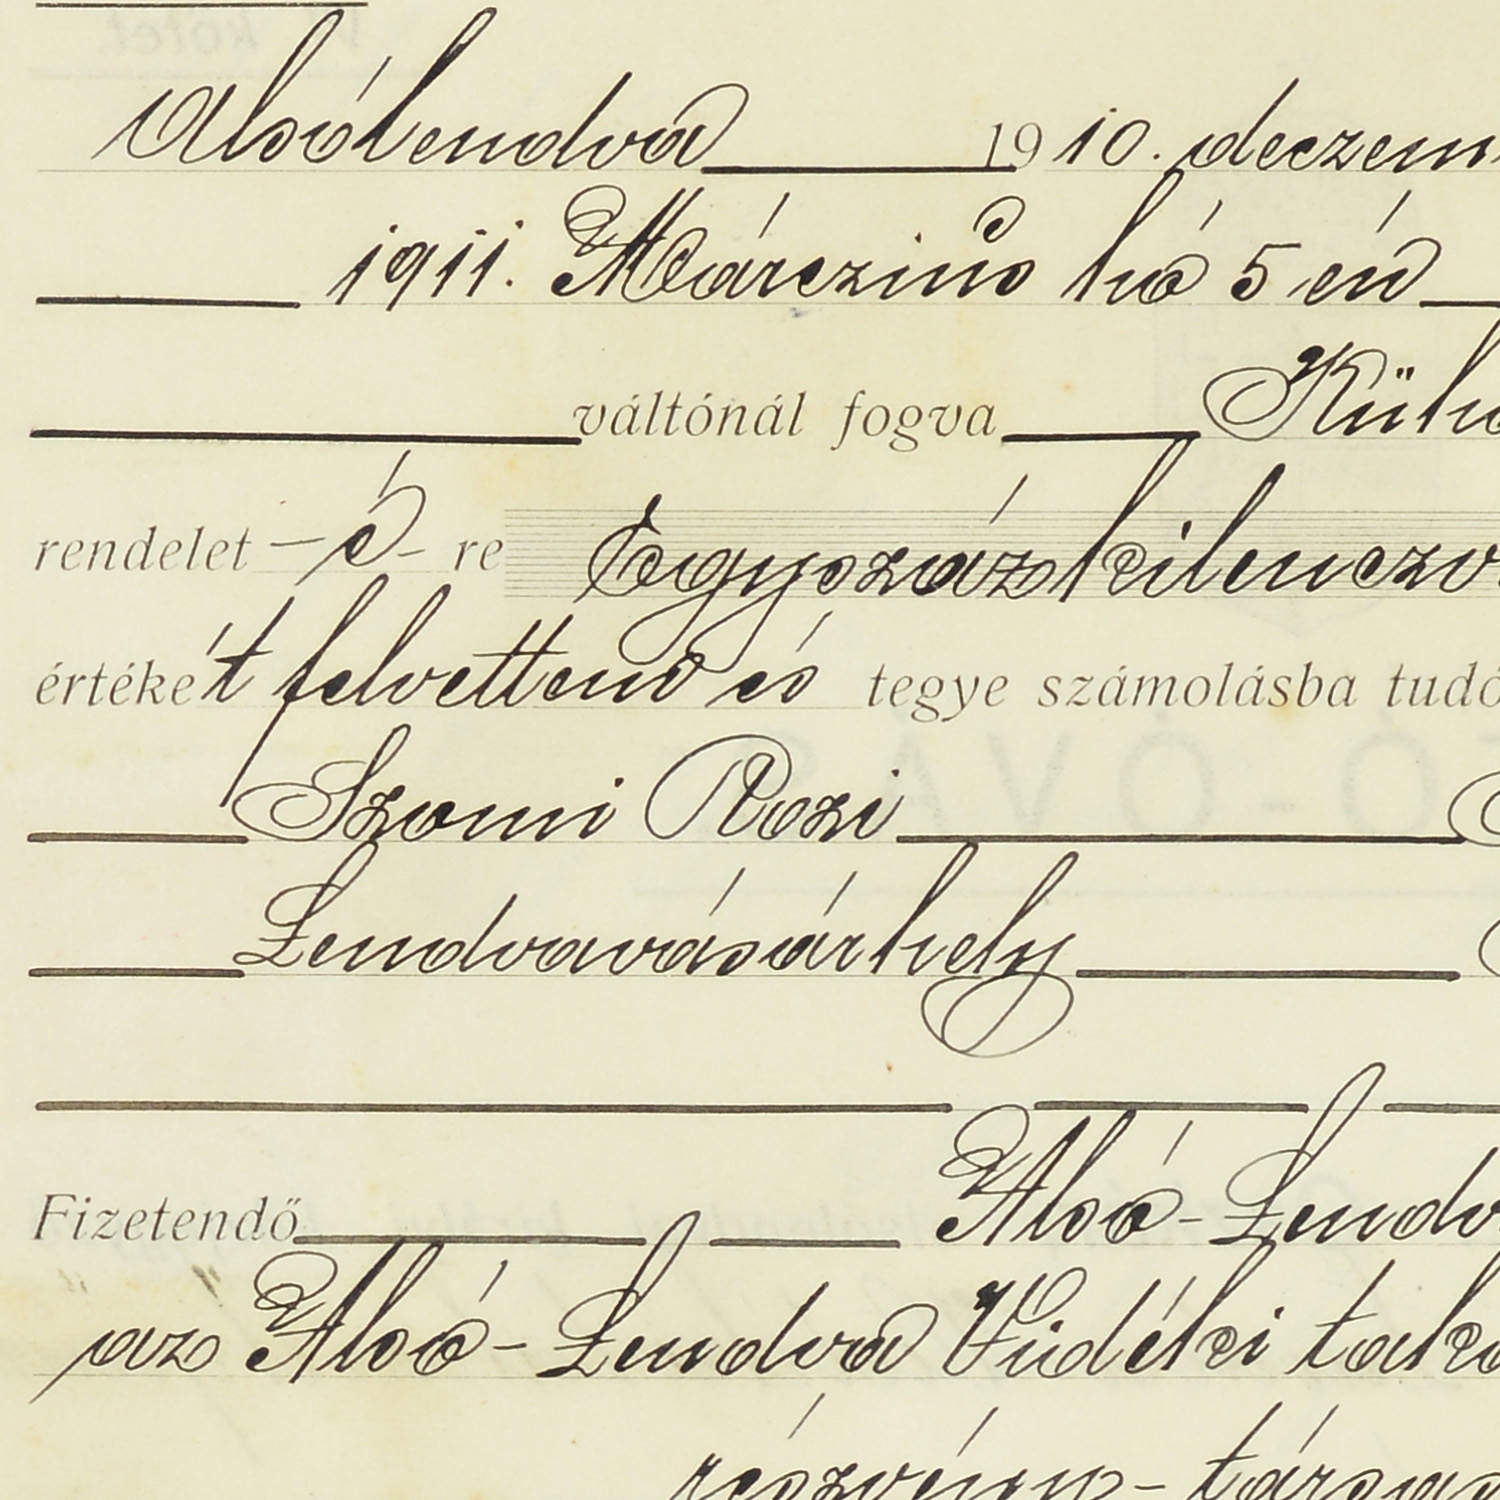 Alsólendva 1910. deczem
1911. Márczius hó 5 én
váltónál fogva
rendelet – é – re Egyszázkilenczv
értékét felvettem és tegye számolásba tudó
Szomi Rozi
Lendvavásárhely
Fizetendő Alsó-Lendv
az Alsó-Lendva Vidéki taka
részvény-társas